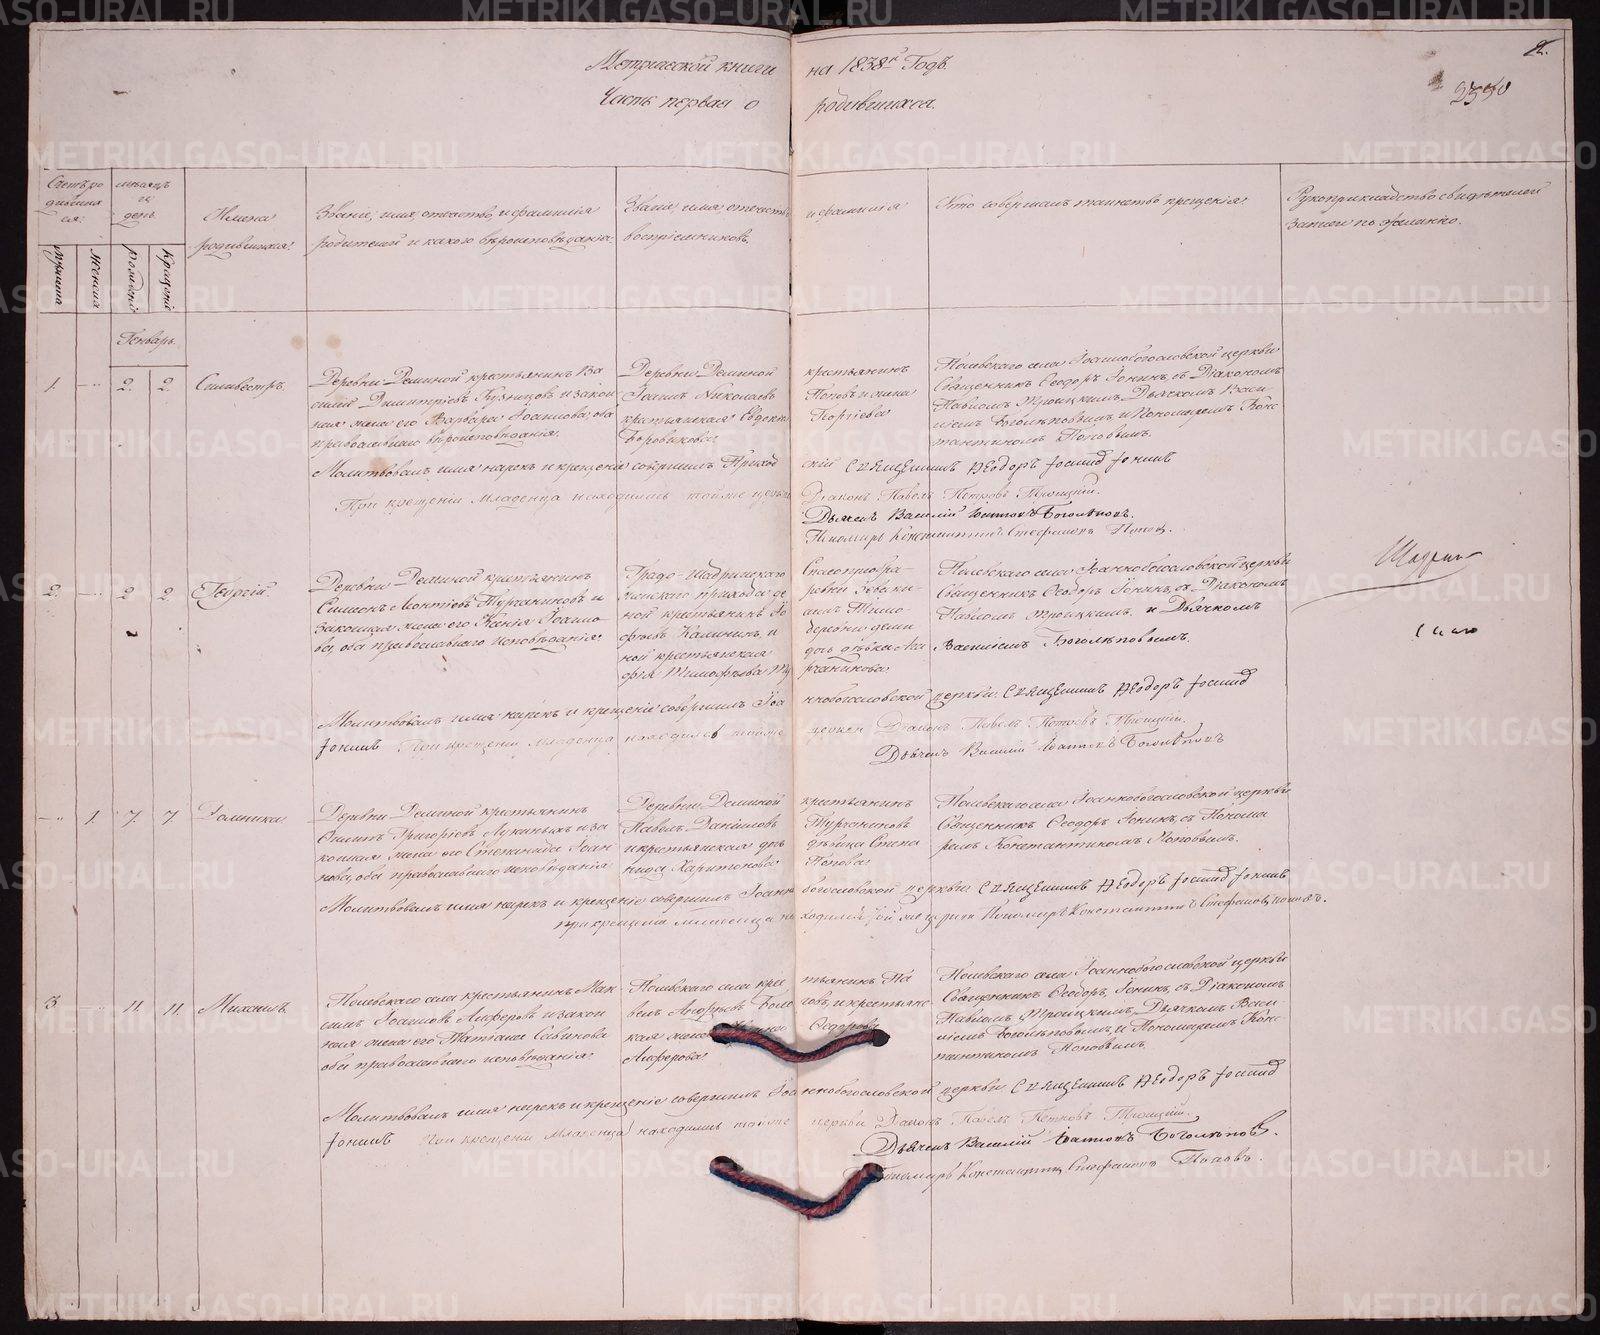 Метрической книги на 1838й Годъ.
Часть первая о родившихся.
2.
2550
Счетъ ро
дивших
ся.
мѣсяцъ
и
день
Имена
родившихся.
Званіе, имя, отчество, и фамилія
родителей и какого вѣроисповѣданія.
Званіе, имя, отчество и фамилія
воспріемниковъ.
Кто совершалъ таинство крещенія
Рукоприкладство свидѣтелей
записи по желанію.
мужска
женска
рожденія
крещенія
Генварь.
1.
2.
2.
Сильвестръ.
Деревни Деминой крестьянинъ Ва
силій Димитріевъ Кузнецовъ и закон
ная жена его Варвара Іоаннова, оба
православнаго вѣроисповѣданія.
Деревни Деминой крестьянинъ
Іоаннъ Николаевъ Поповъ и жена
крестьянская Евдокія Георгіева
Боровикова
Полевскаго села Іоаннобогословской церкви
Священникъ Ѳеодоръ Іонинъ, съ Діакономъ
Павломъ Троицкимъ, Дьячкомъ Васи
ліемъ Боголѣповымъ, и Пономаремъ Конс
тантиномъ Поповымъ.
Молитвовалъ имя нарекъ и крещеніе совершилъ Приход
скій Священникъ Ѳеодоръ Іонинъ
При крещеніи младенца находились тойже церкви Діаконъ Павелъ Петровъ Троицкій.
Дьячекъ Василій Боголѣповъ.
Пономарь Константинъ Стефановъ Попов.
2.
2
2
Георгій.
Деревни Деминой крестьянинъ
Симеонъ Леонтіевъ Турчаниновъ и
законная жена его Іоанно
ва, оба православнаго исповѣданія.
Градо-Шадринскаго Спасопреобра-
женскаго прихода де ревни
ной крестьянинъ Тимо
фѣевъ Калининъ, и деревни Деми
ной крестьянская дочь дѣвка Ма
рфа Тимофѣева Турчанинова
Полевскаго села Іоаннобогословской церкви
Священникъ Ѳеодоръ Іонинъ, съ Діакономъ
Павломъ Троицкимъ, и Дьячкомъ
Василіемъ Боголѣповымъ.
Молитвовалъ имя нарекъ и крещеніе совершилъ Іоа ннобогословской церкви Священникъ Ѳеодоръ
Іонинъ При крещеніи младенца находились тойже церкви Діаконъ Павелъ Петровъ Троицкій.
Дьячекъ Василій Боголѣповъ
1.
7.
7.
Домника.
Деревни Деминой крестьянинъ
Филиппъ Григоріевъ Лукиныхъ и за
конная жена его Степанида Іоан
нова, оба православнаго исповѣданія
Деревни Деминой крестьянинъ
Павелъ Даніиловъ Турчаниновъ
и крестьянская дочь дѣвица Степа
нида Харитонова Попова
Полевскаго села Іоаннобогословской церкви
Священникъ Ѳеодоръ Іонинъ, съ Понома
ремъ Константиномъ Поповымъ.
Молитвовалъ имя нарекъ и крещеніе совершилъ Іоанно богословской церкви Священникъ Ѳеодоръ Іонинъ
При крещеніи младенца на ходился той же церкви Пономарь Константинъ Стефановъ Поповъ.
3
11.
11.
Михаилъ.
Полевскаго села крестьянинъ Мак
симъ Іоанновъ Алферовъ и закон
ная жена его Татіана Саввинова
оба православнаго исповѣданія.
Полевскаго села крес тьянинъ Па
велъ и крестьянс
кая жена Ѳеодорова
Алферова
Полевскаго села Іоаннобогословской церкви
Священникъ Ѳеодоръ Іонинъ, съ Діакономъ
Павломъ Троицкимъ, Дьячкомъ Васи
ліемъ Боголѣповымъ, и Пономаремъ Конс
тантиномъ Поповымъ.
Молитвовалъ имя нарекъ и крещеніе совершилъ Іоа ннобогословской церкви Священникъ Ѳеодоръ
Іонинъ При крещеніи младенца находились тойже церкви Діаконъ Павелъ Петровъ Троицкій.
Дьячекъ Василій Боголѣповъ.
Пономарь Константинъ Стефановъ Поповъ.
METRIKI.GASO-URAL.RU